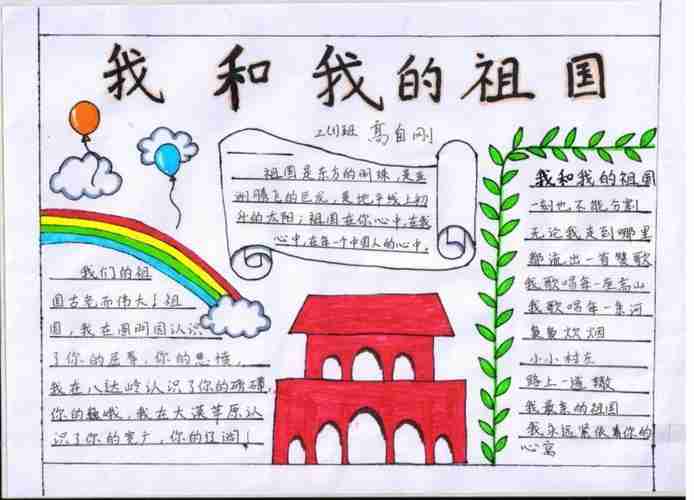 我和我的祖国
二(1)班 高自刚
祖国是东方的明珠,是亚
洲腾飞的巨龙,是地平线上初
升的太阳;祖国在你心中,在我
心中,在每一个中国人的心中.
我们的祖
国古老而伟大!祖
国,我在圆明园认识
了你的屈辱,你的愤
我在八达岭认识了你的
你的巍峨,我在大漠草原认
识了你的宽广,你的辽阔!
我和我的祖国
一刻也不能分割
无论我走到哪里
都流出一首赞歌
我歌唱每一座高山
我歌唱每一条河
袅袅炊烟
小小村庄
路上一道辙
我最亲的祖国
我永远紧依着你的
心窝